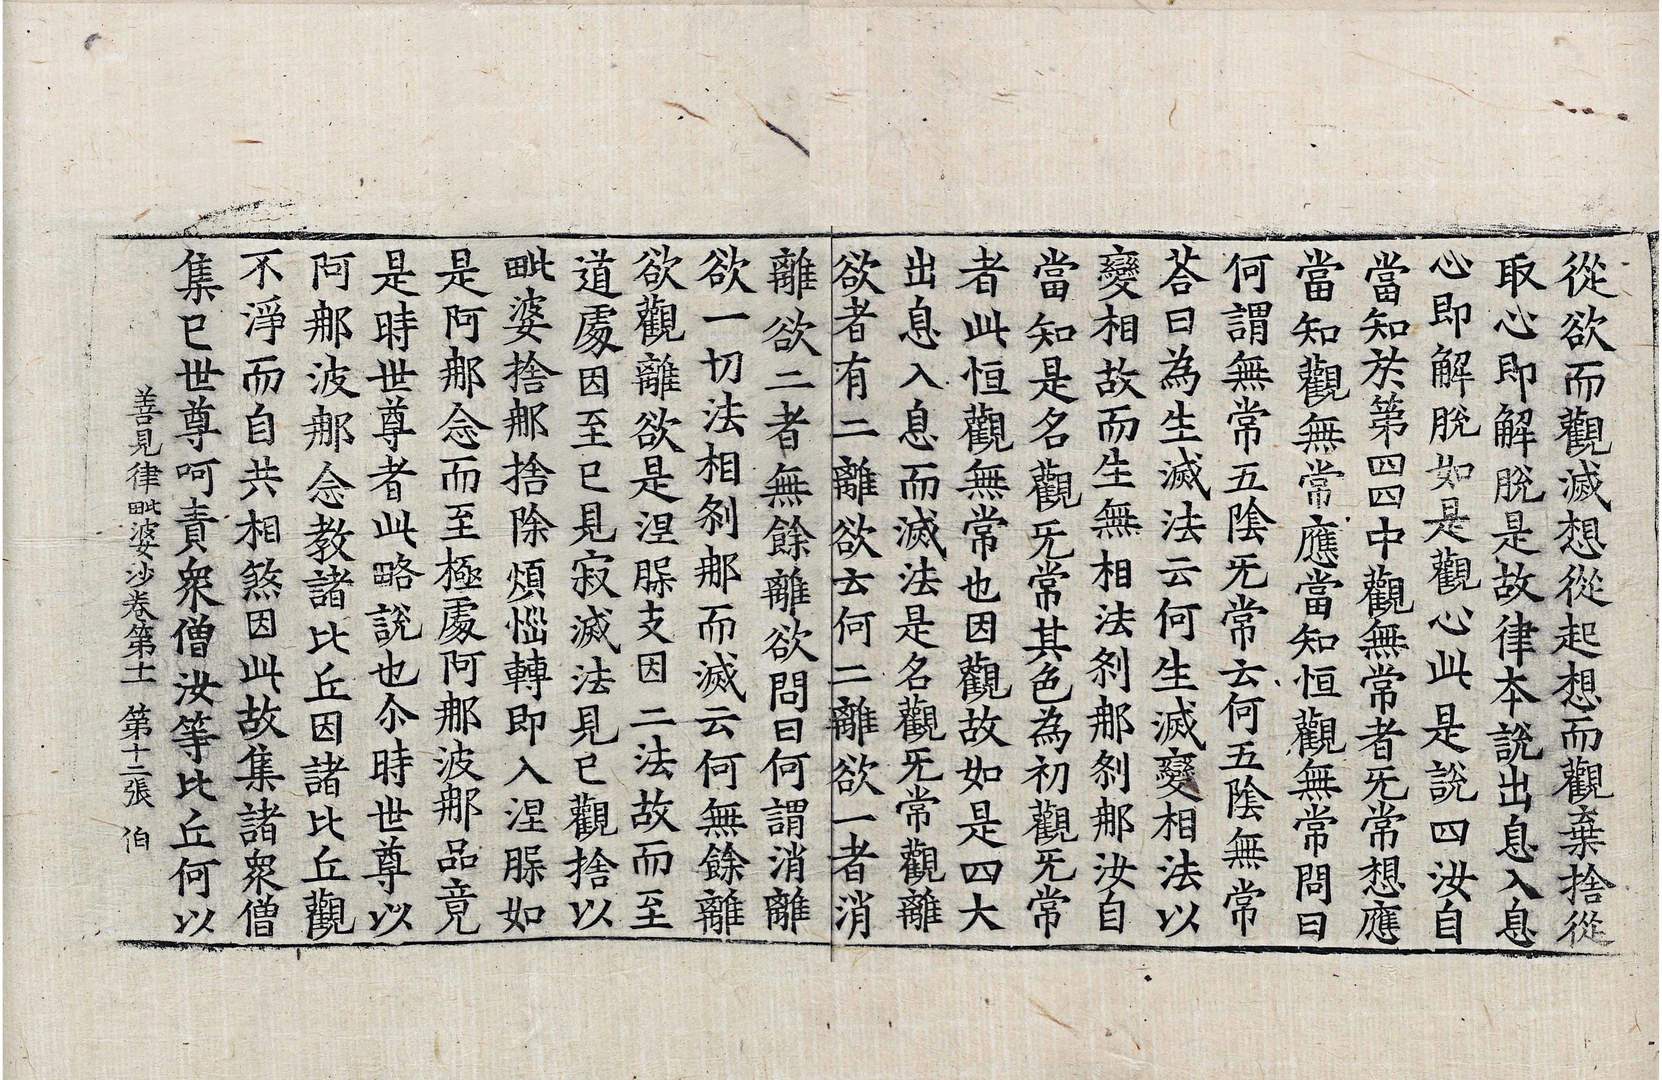 從欲而觀滅想從起想而觀棄捨從
取心即解脫是故律本說出息入息
心即解脫如是觀心此是說四汝自
當知於第四四中觀無常者旡常想應
當知觀無常應當知恒觀無常問曰
何謂無常五陰旡常云何五陰無常
荅曰為生滅法云何生滅變相法以
變相故而生無相法剎那剎那汝自
當知是名觀旡常其色為初觀旡常
者此恒觀無常也因觀故如是四大
出息入息而滅法是名觀旡常觀離
欲者有二離欲云何二離欲一者消
離欲二者無餘離欲問曰何謂消離
欲一切法相剎那而滅云何無餘離
欲觀離欲是涅脲支因二法故而至
道處因至已見寂滅法見已觀捨以
毗婆捨那捨除煩惱轉即入涅脲如
是阿那念而至極處阿那波那品竟
是時世尊者此略說也尒時世尊以
阿那波那念教諸比丘因諸比丘觀
不淨而自共相煞因此故集諸衆僧
集已世尊呵責衆僧汝等比丘何以
善見律毗婆沙卷第十一 第十二張 伯